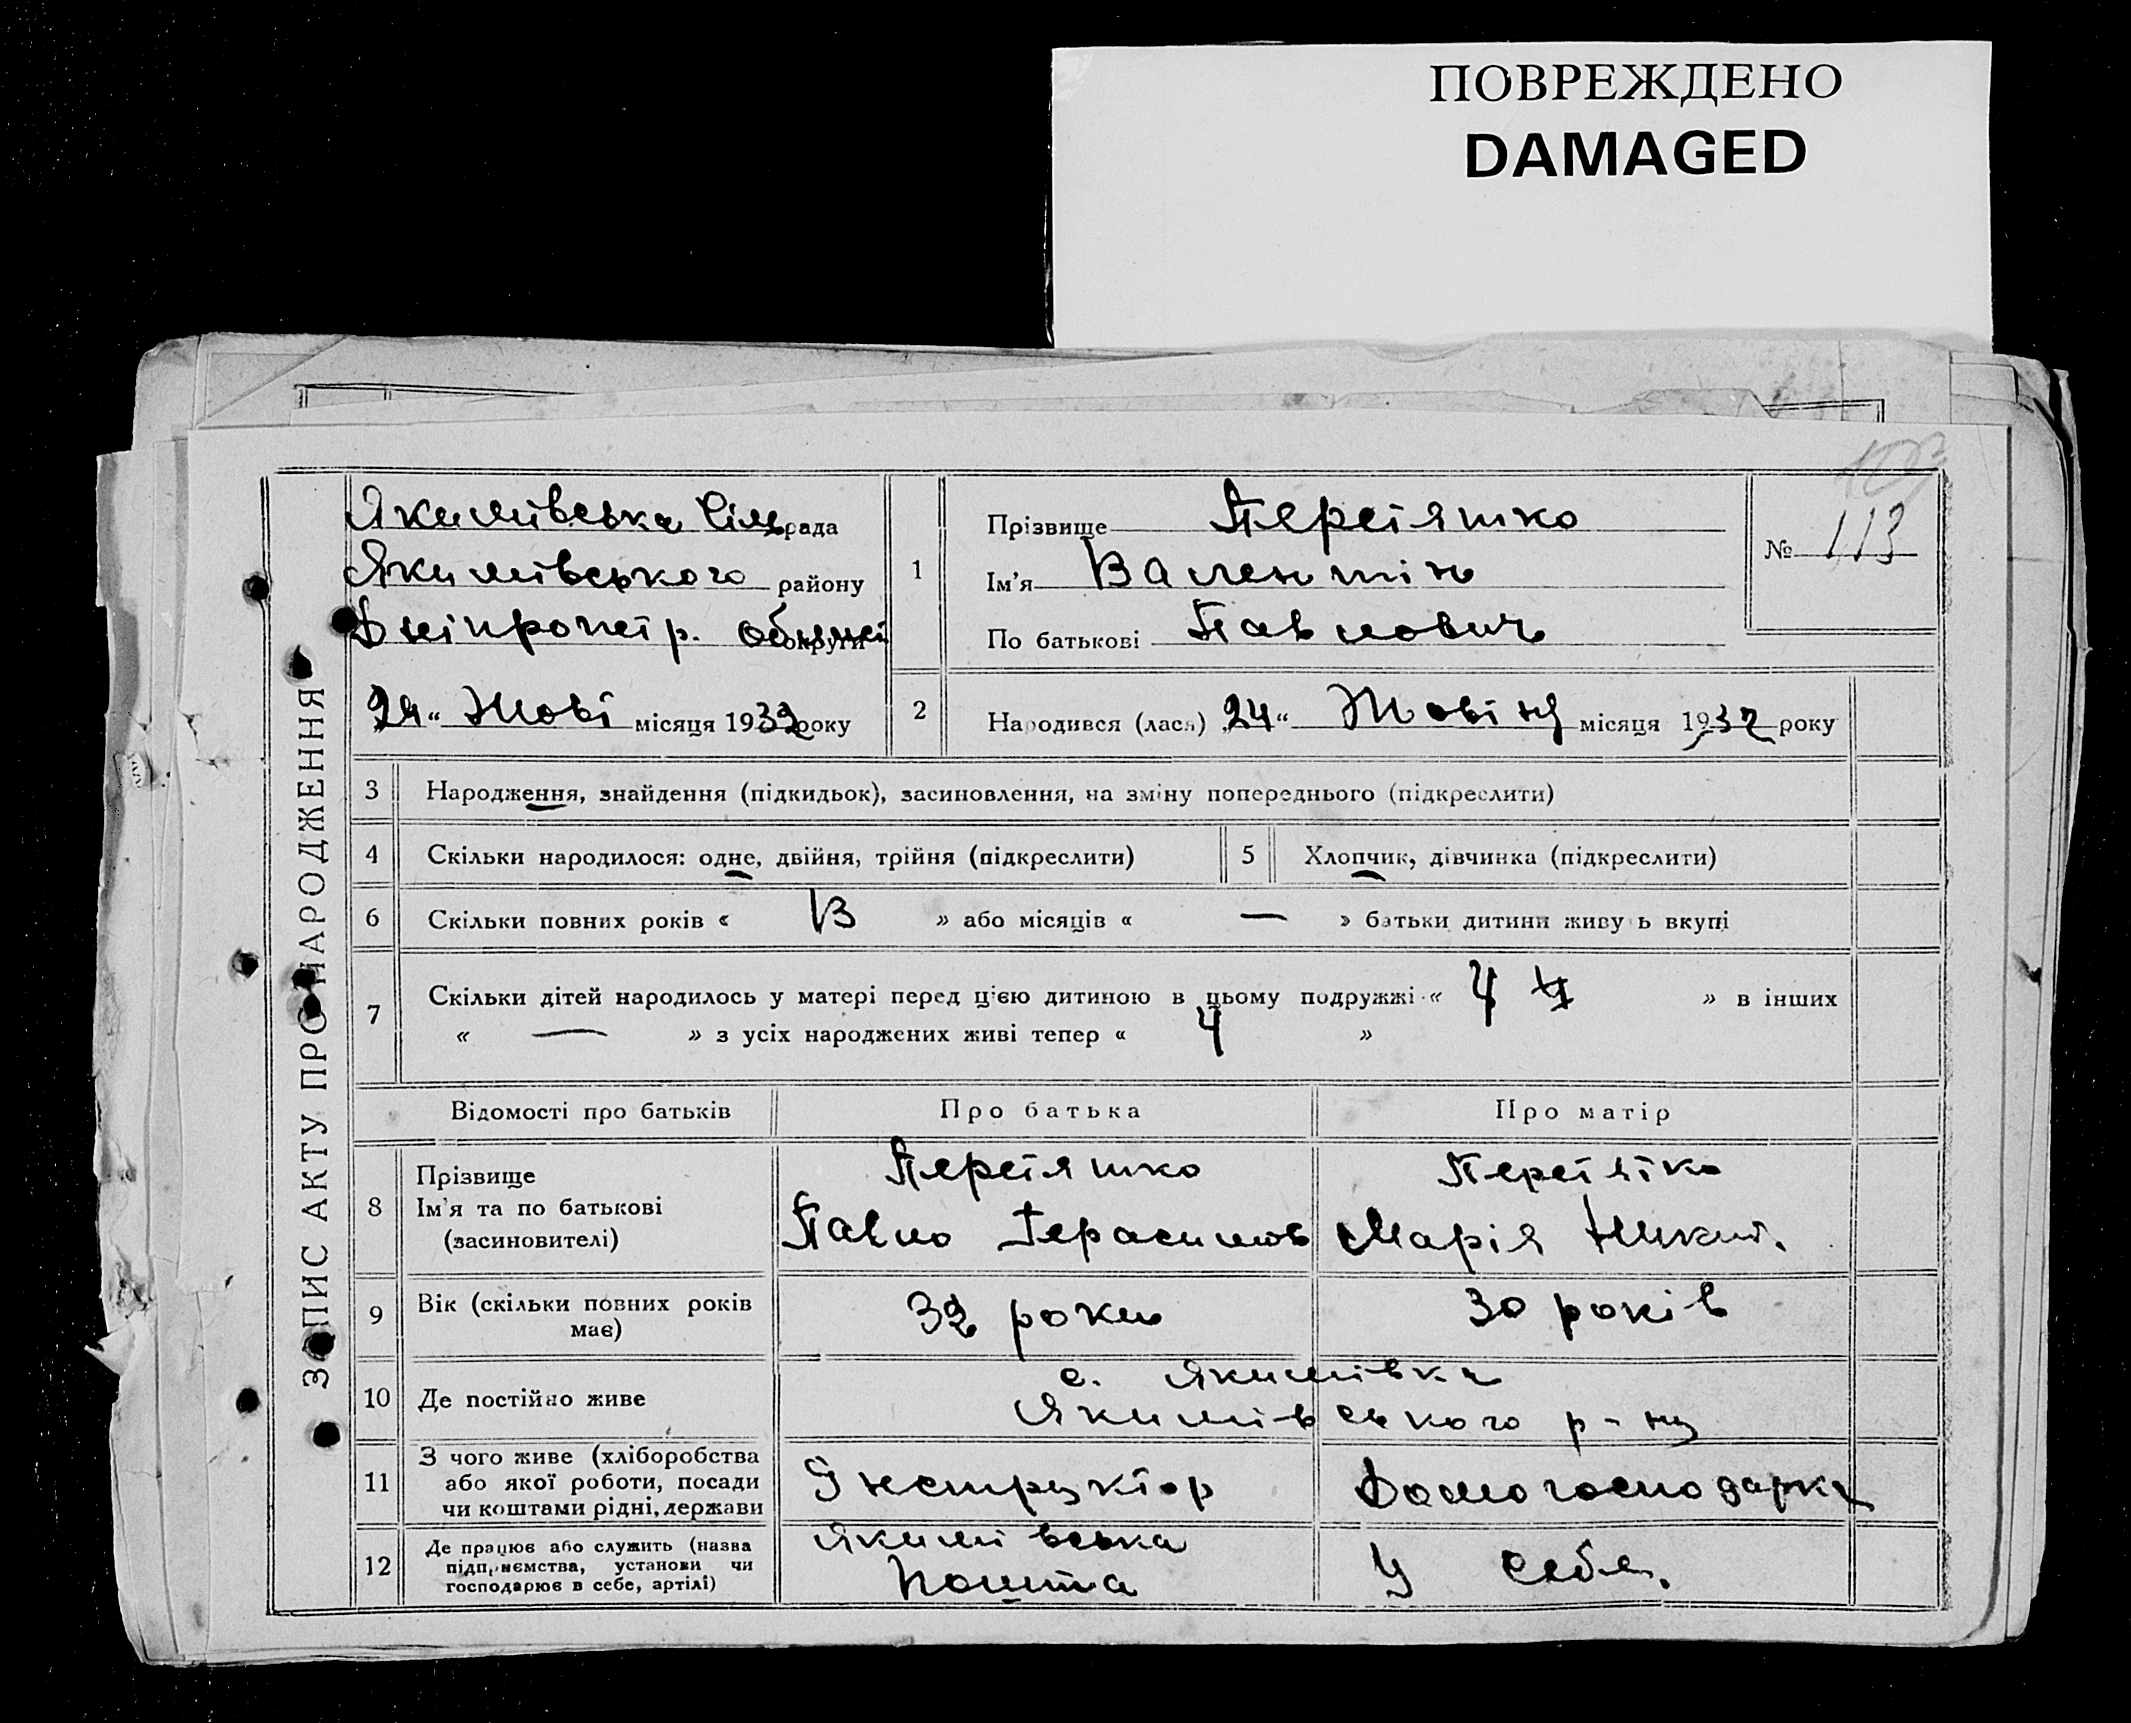 ПОВРЕЖДЕНО
DAMAGED
ЗАПИС АКТУ ПРО НАРОДЖЕННЯ
Якимівська Сільрада
Якимівського району
Дніпропетр. області округи
24 " Жовт місяця 1932 року
1
Прізвище Перетятко
Ім'я Валентін
По батькові Павлович
№ 113
2
Народився (лася) 24 " Жовтня місяця 1932 року
3 Народження, знайдення (підкидьок), засиновлення, на зміну попереднього (підкреслити)
4 Скільки народилося: одне, двійня, трійня (підкреслити)
5 Хлопчик, дівчинка (підкреслити)
6 Скільки повних років « 13 » або місяців « — » батьки дитини живуть вкупі
7 Скільки дітей народилось у матері перед цією дитиною в цьому подружжі « 4 » в інших
« — » з усіх народжених живі тепер « 4 »
Відомості про батьків
Про батька
Про матір
8
Прізвище
Ім'я та по батькові
(засиновителі)
Перетятко
Павло Герасимов
Перетятко
Марія Никит.
9
Вік (скільки повних років
має)
32 роки
30 років
10 Де постійно живе
с. Якимівка
Якимівського р-ну
11
З чого живе (хліборобства
або якої роботи, посади
чи коштами рідні, держави
Інструктор
Домогосподарка
12
Де працює або служить (назва
підприємства, установи чи
господарює в себе, артілі)
Якимівська
Пошта
У себя.